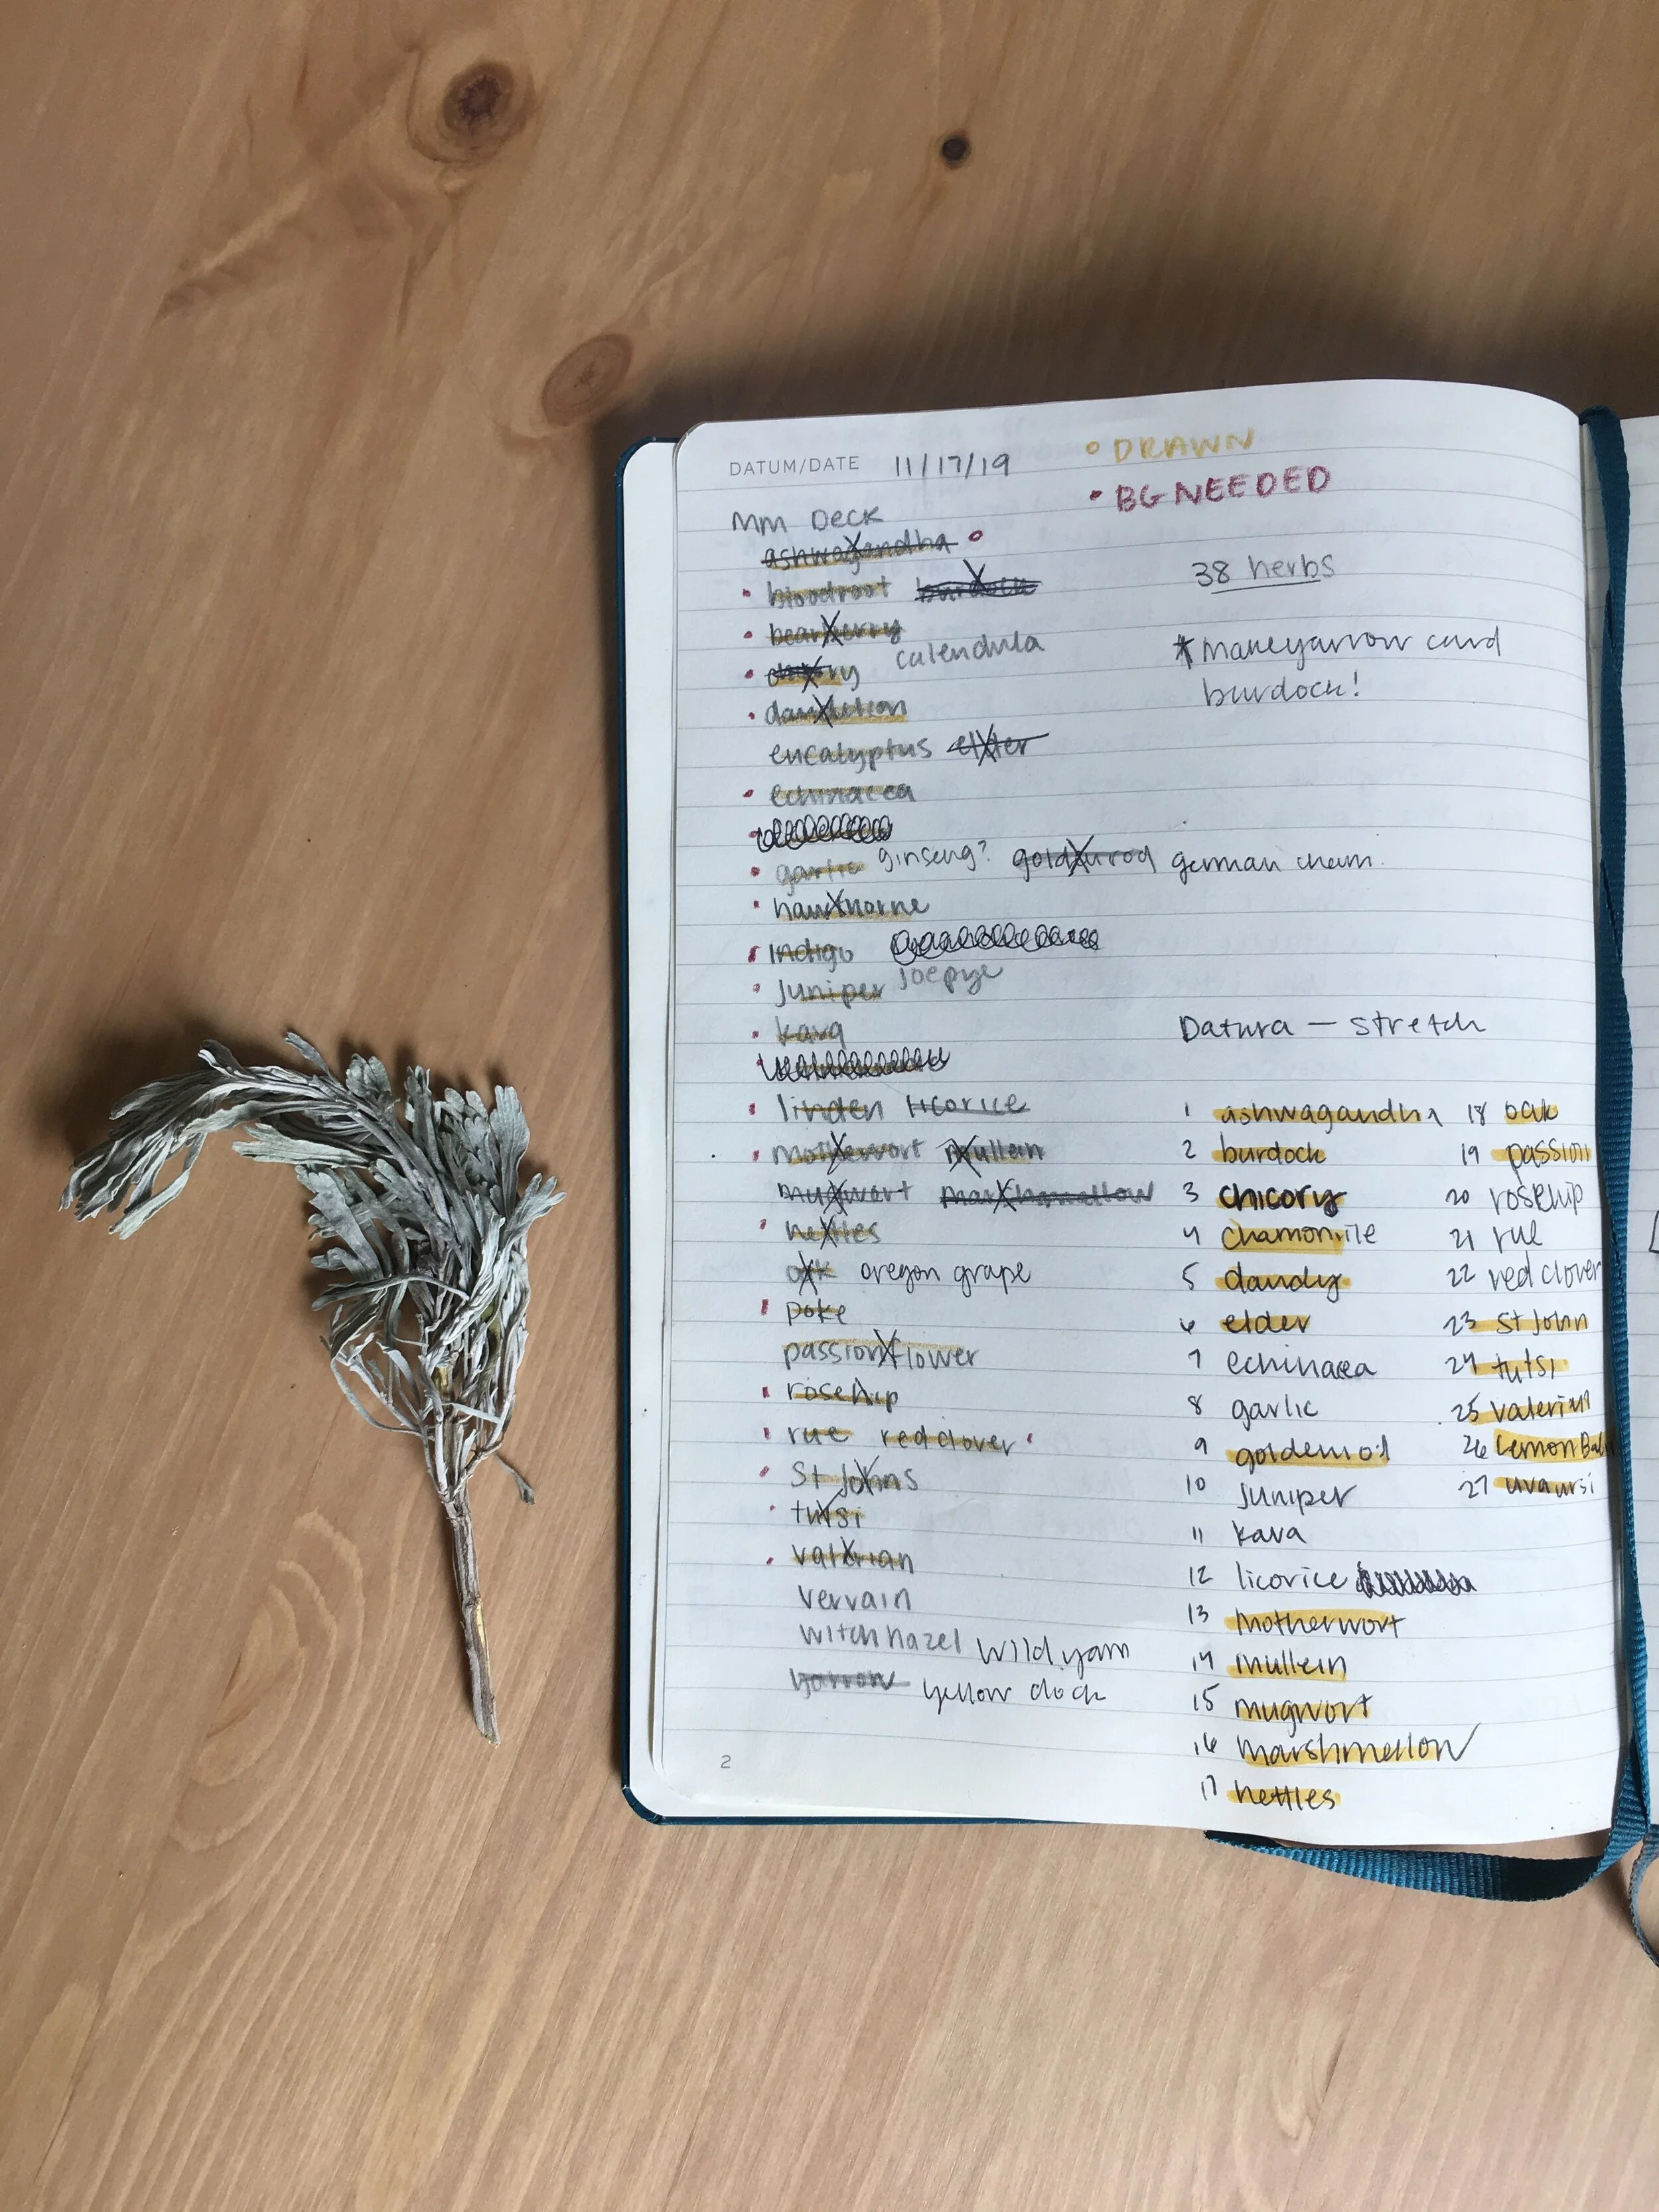 DATUM/DATE 11/17/19
• DRAWN
• BG NEEDED
MM Deck
ashwagandha
bloodroot burdock
bearberry
chicory calendula
dandelion
eucalyptus elder
echinacea
garlic ginseng? goldenrod german cham.
hawthorne
Indigo
Juniper Joepye
kava
linden licorice
motherwort Mullein
mugwort marshmallow
nettles
oak oregon grape
poke
passionflower
rosehip
rue red clover
St Johns
tulsi
valerian
vervain
witch hazel wild yam
yarrow yellow dock
2
38 herbs
* Make yarrow card
burdock!
Datura — stretch
1 ashwagandha
2 burdock
3 chicory
4 chamomile
5 dandy
6 elder
7 echinacea
8 garlic
9 goldenrod
10 Juniper
11 kava
12 licorice
13 Motherwort
14 mullein
15 mugwort
16 marshmellow
17 nettles
18 oak
19 passion
20 rosehip
21 rue
22 red clover
23 St John
24 tulsi
25 valerian
26 Lemon Balm
27 uva ursi